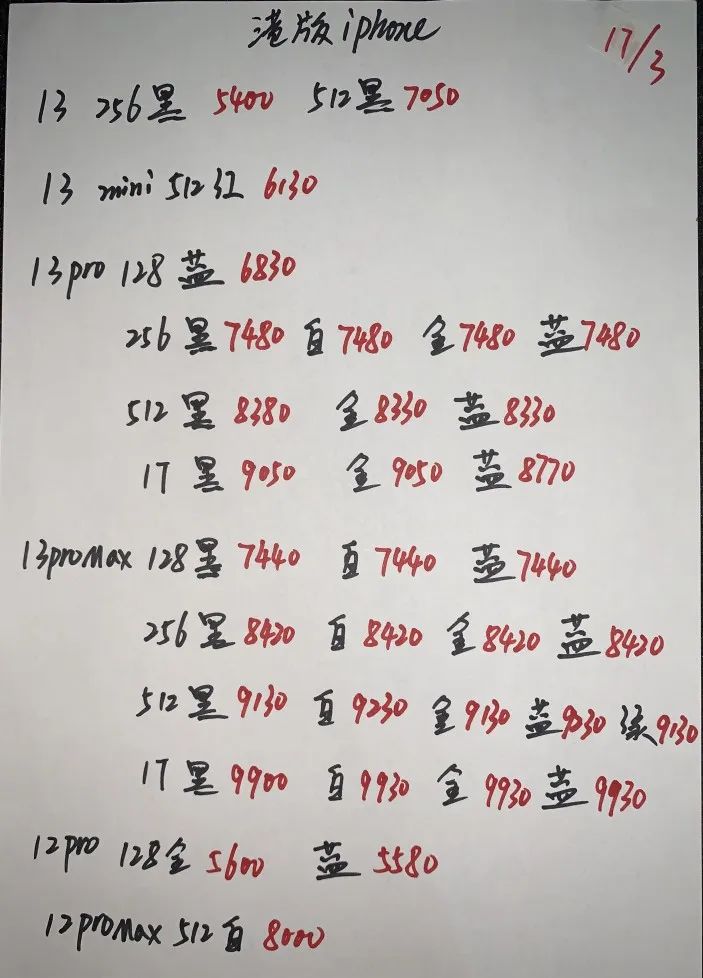 港版iphone
17/3
13 256黑 5400 512黑 7050
13 mini 512红 6130
13pro 128 蓝 6830
256 黑 7480 白 7480 金 7480 蓝 7480
512 黑 8380 金 8330 蓝 8330
1T 黑 9050 金 9050 蓝 8770
13proMax 128 黑 7440 白 7440 蓝 7440
256 黑 8420 白 8420 金 8420 蓝 8420
512 黑 9130 白 9230 金 9130 蓝 绿 9130
1T 黑 9900 白 9930 金 9930 蓝 9930
12pro 128金 5600 蓝 5580
12proMax 512 白 8000